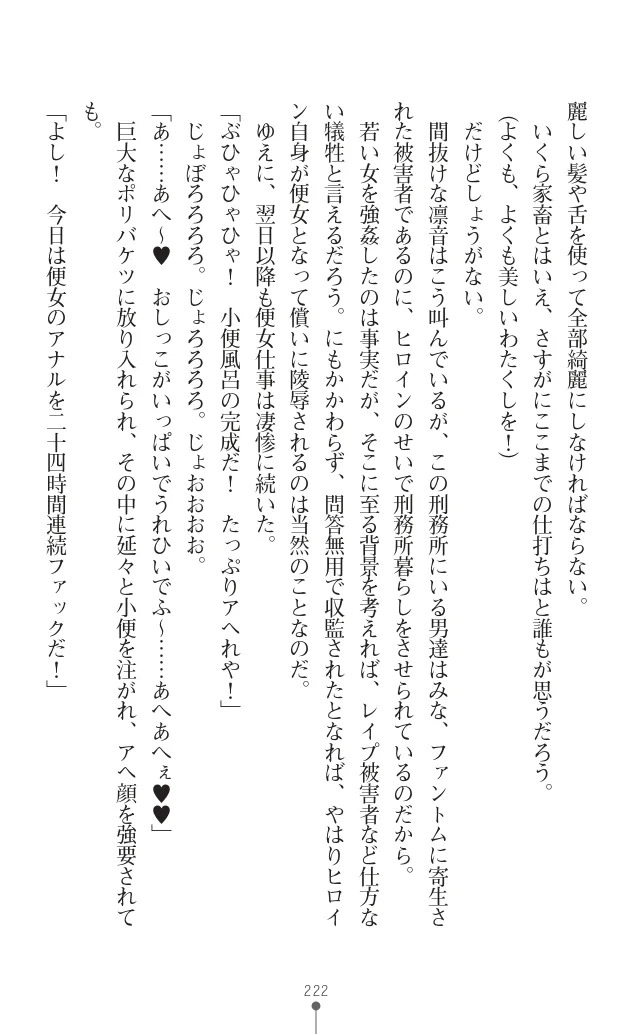 麗しい髪や舌を使って全部綺麗にしなければならない。
　いくら家畜とはいえ、さすがにここまでの仕打ちはと誰もが思うだろう。
（よくも、よくも美しいわたくしを！）
　だけどしょうがない。
　間抜けな凛音はこう叫んでいるが、この刑務所にいる男達はみな、ファントムに寄生さ
れた被害者であるのに、ヒロインのせいで刑務所暮らしをさせられているのだから。
　若い女を強姦したのは事実だが、そこに至る背景を考えれば、レイプ被害者など仕方な
い犠牲と言えるだろう。にもかかわらず、問答無用で収監されたとなれば、やはりヒロイ
ン自身が便女となって償いに陵辱されるのは当然のことなのだ。
　ゆえに、翌日以降も便女仕事は凄惨に続いた。
「ぶひゃひゃひゃ！　小便風呂の完成だ！　たっぷりアへれや！」
　じょぼろろろろ。じょろろろろ。じょおおおお。
「あ……あへ～♥　おしっこがいっぱいでうれひいでふ～……あへあへぇ♥♥」
　巨大なポリバケツに放り入れられ、その中に延々と小便を注がれ、アへ顔を強要されて
も。
「よし！　今日は便女のアナルを二十四時間連続ファックだ！」
222